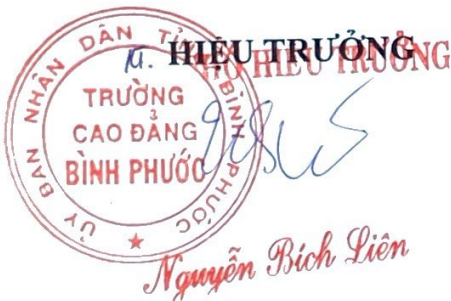 KT. HIỆU TRƯỞNG
PHÓ HIỆU TRƯỞNG
ỦY BAN NHÂN DÂN TỈNH BÌNH PHƯỚC
TRƯỜNG
CAO ĐẲNG
BÌNH PHƯỚC
Nguyễn Bích Liên